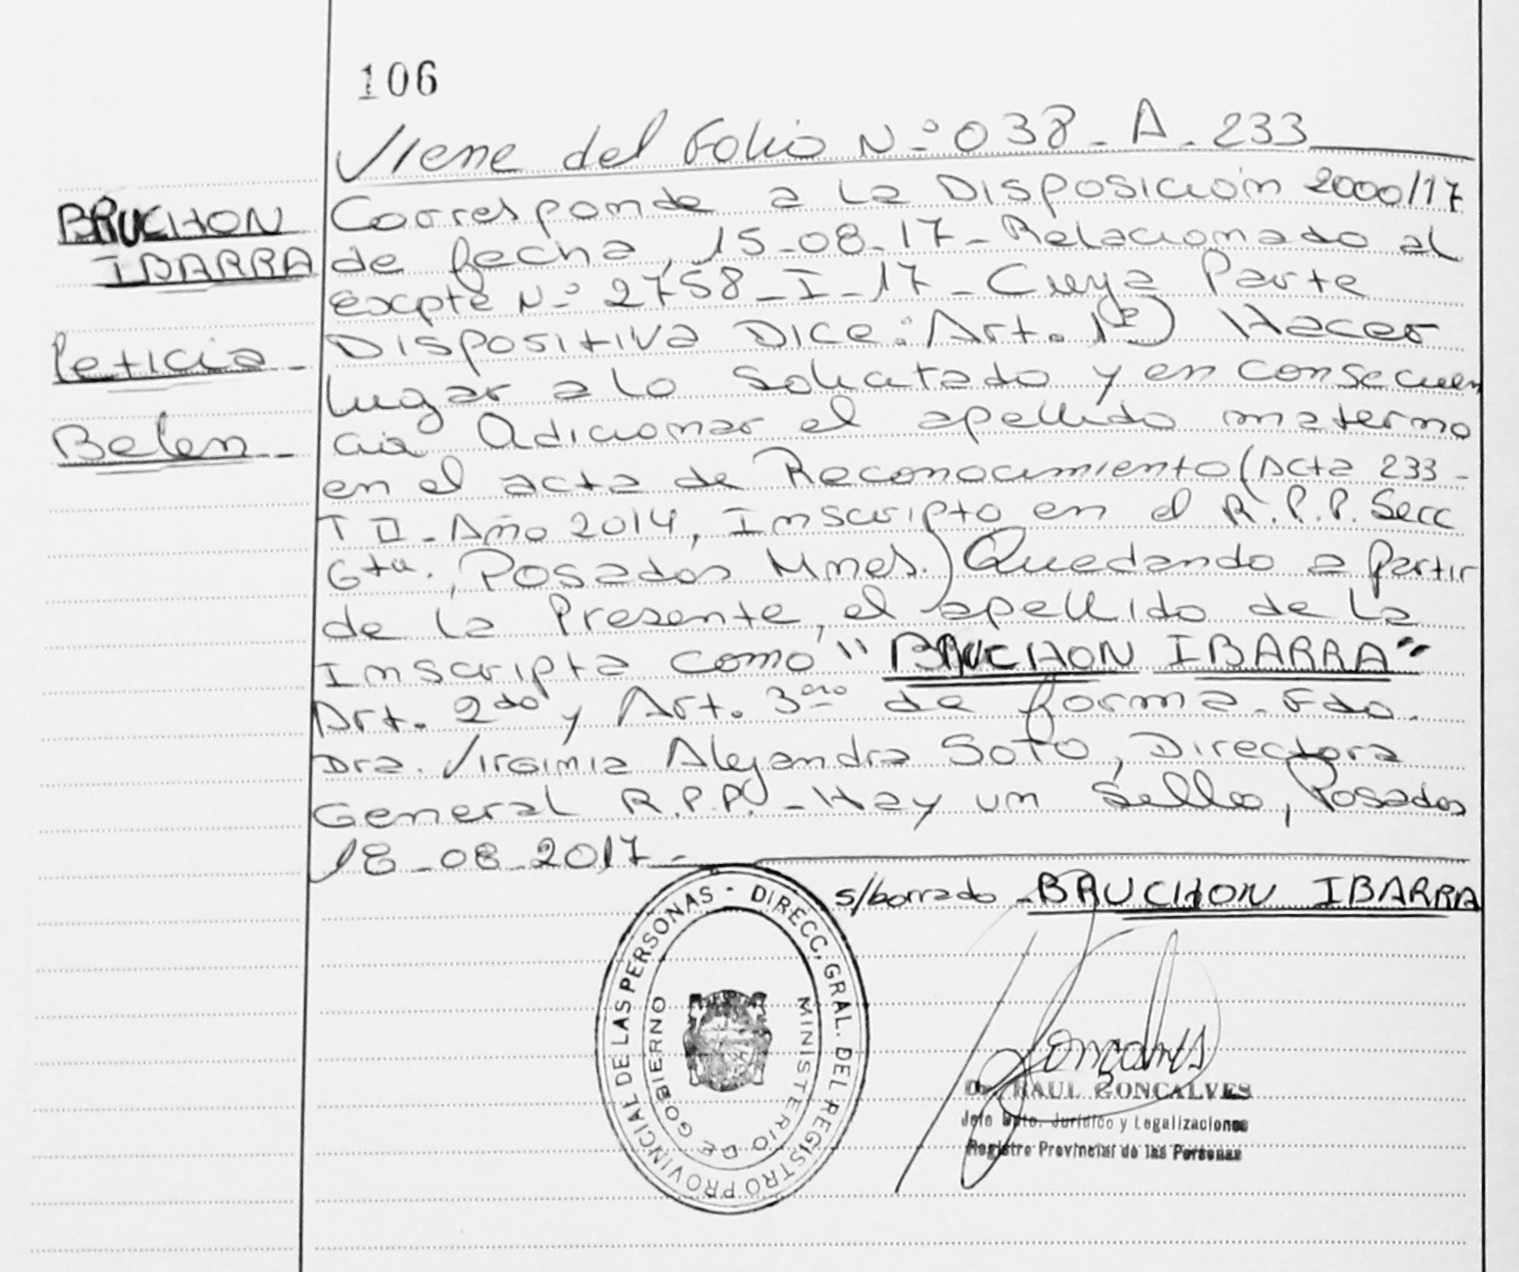 106
Viene del Folio N:º 038 - A - 233
BRUCHON
IBARRA
Leticia
Belen
Corresponde a la Disposición 2000/17
de fecha, 15-08-17- Relacionado al
expte N:º 2758-I-17- Cuya Parte
Dispositiva Dice: Art. 1º) Hacer
lugar a lo solicitado y en consecuen
cia Adicionar el apellido materno
en el acta de Reconocimiento (Acta 233-
T II - Año 2014, Inscripto en el R.P.P. Secc
6ta., Posadas Mnes.) Quedando a partir
de la Presente, el apellido de la
Inscripta como "BRUCHON IBARRA"
Art. 2do y Art. 3ero de forma. Fdo.
Dra. Virginia Alejandra Soto, Directora
General R.P.P. - Hay un Sello, Posadas
18-08-2017-
s/borrado - BRUCHON IBARRA
REGISTRO PROVINCIAL DE LAS PERSONAS - DIRECC. GRAL. DEL
MINISTERIO DE GOBIERNO
Gonçalves
Dr. RAUL GONCALVES
Jefe Dpto. Jurídico y Legalizaciones
Registro Provincial de las Personas